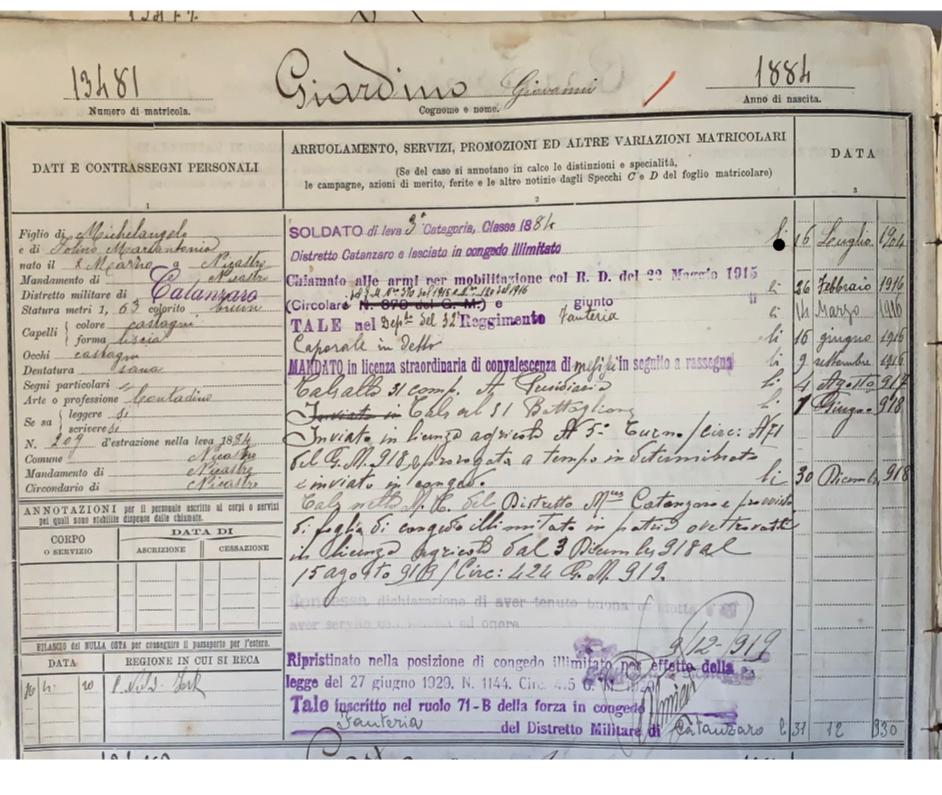 13481
Numero di matricola.
Giardino Giovanni
Cognome e nome.
1884
Anno di nascita.
DATI E CONTRASSEGNI PERSONALI
1
ARRUOLAMENTO, SERVIZI, PROMOZIONI ED ALTRE VARIAZIONI MATRICOLARI
(Se del caso si annotano in calce le distinzioni e specialità,
le campagne, azioni di merito, ferite e le altre notizie dagli Specchi C e D del foglio matricolare)
2
DATA
3
Figlio di Michelangelo
e di Mariantonia
nato il 8 Marzo a Nicastro
Mandamento di Nicastro
Distretto militare di Catanzaro
Statura metri 1, 63 colorito bruno
Capelli { colore castagni
forma liscia
Occhi castagni
Dentatura sana
Segni particolari
Arte o professione Contadino
Se sa { leggere si
scrivere si
N. 209 d'estrazione nella leva 1884
Comune Nicastro
Mandamento di Nicastro
Circondario di Nicastro
SOLDATO di leva 3ª Categoria, Classe 1884
Distretto Catanzaro e lasciato in congedo illimitato
li 16 Luglio 1904
Chiamato alle armi per mobilitazione col R. D. del 22 Maggio 1915
(Circolare N. 370 del G. M.) e giunto
li 26 Febbraio 1916
TALE nel Depto del 32° Reggimento Fanteria
li 14 Marzo 1916
Caporale in detto
li 15 giugno 1916
MANDATO in licenza straordinaria di convalescenza di mesi in seguito a rassegna
li 9 settembre 1916
31 comp. Presidiaria
li 4 Agosto 917
Inviato in Tale al 51 Battaglione
li 1 Giugno 918
Inviato in licenza agricola Circ: 471
del G. M. 918, prorogata a tempo indeterminato
e inviato in congedo.
li 30 Dicembre 918
Tale nella M. T. del Distretto Catanzaro e provvisto
di foglio di congedo illimitato in patria
in licenza agricola dal 3 Dicembre 918 al
15 agosto 918 / Circ: 424 G. M. 919.
Concessa dichiarazione di aver tenuto buona condotta e di
aver servito con fedeltà ed onore
9/12-919
Ripristinato nella posizione di congedo illimitato per effetto della
legge del 27 giugno 1929. N. 1144. Circ. G. M.
Tale inscritto nel ruolo 71-B della forza in congedo
Fanteria del Distretto Militare di Catanzaro li 31 12 930
ANNOTAZIONI per il personale ascritto ai corpi o servizi
pei quali sono stabilite dispense dalle chiamate.
CORPO
O SERVIZIO
DATA DI
ASCRIZIONE
CESSAZIONE
RILASCIO del NULLA OSTA per conseguire il passaporto per l'estero.
DATA
REGIONE IN CUI SI RECA
20 York